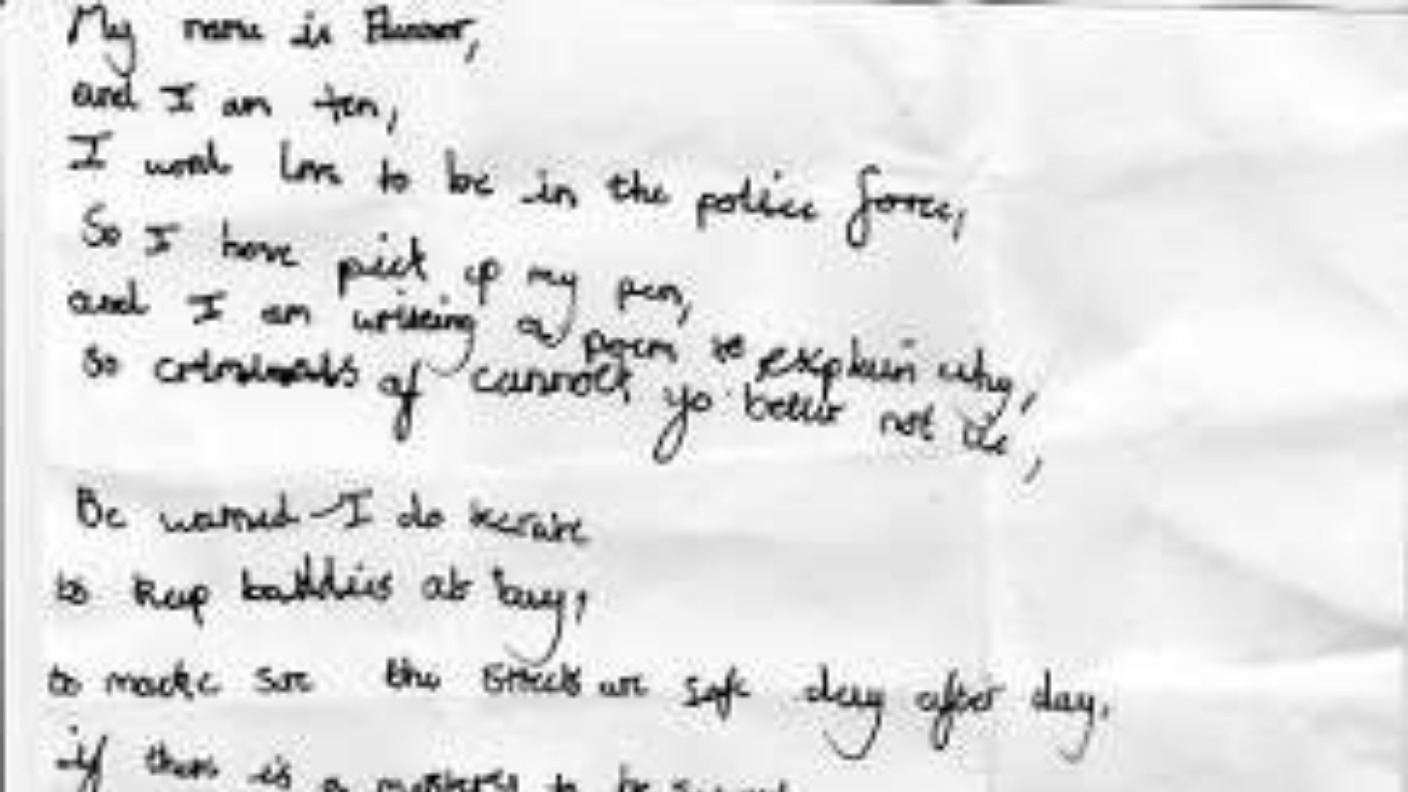 My name is
and I am ten,
I would love to be in the police force,
So I have pick up my pen,
and I am writing a poem to explain why,
So criminals of cannock yo better not lie,
Be warned I do
to keep baddies at bay,
to make sure the streets are safe day after day,
if there is a mystery to be solved